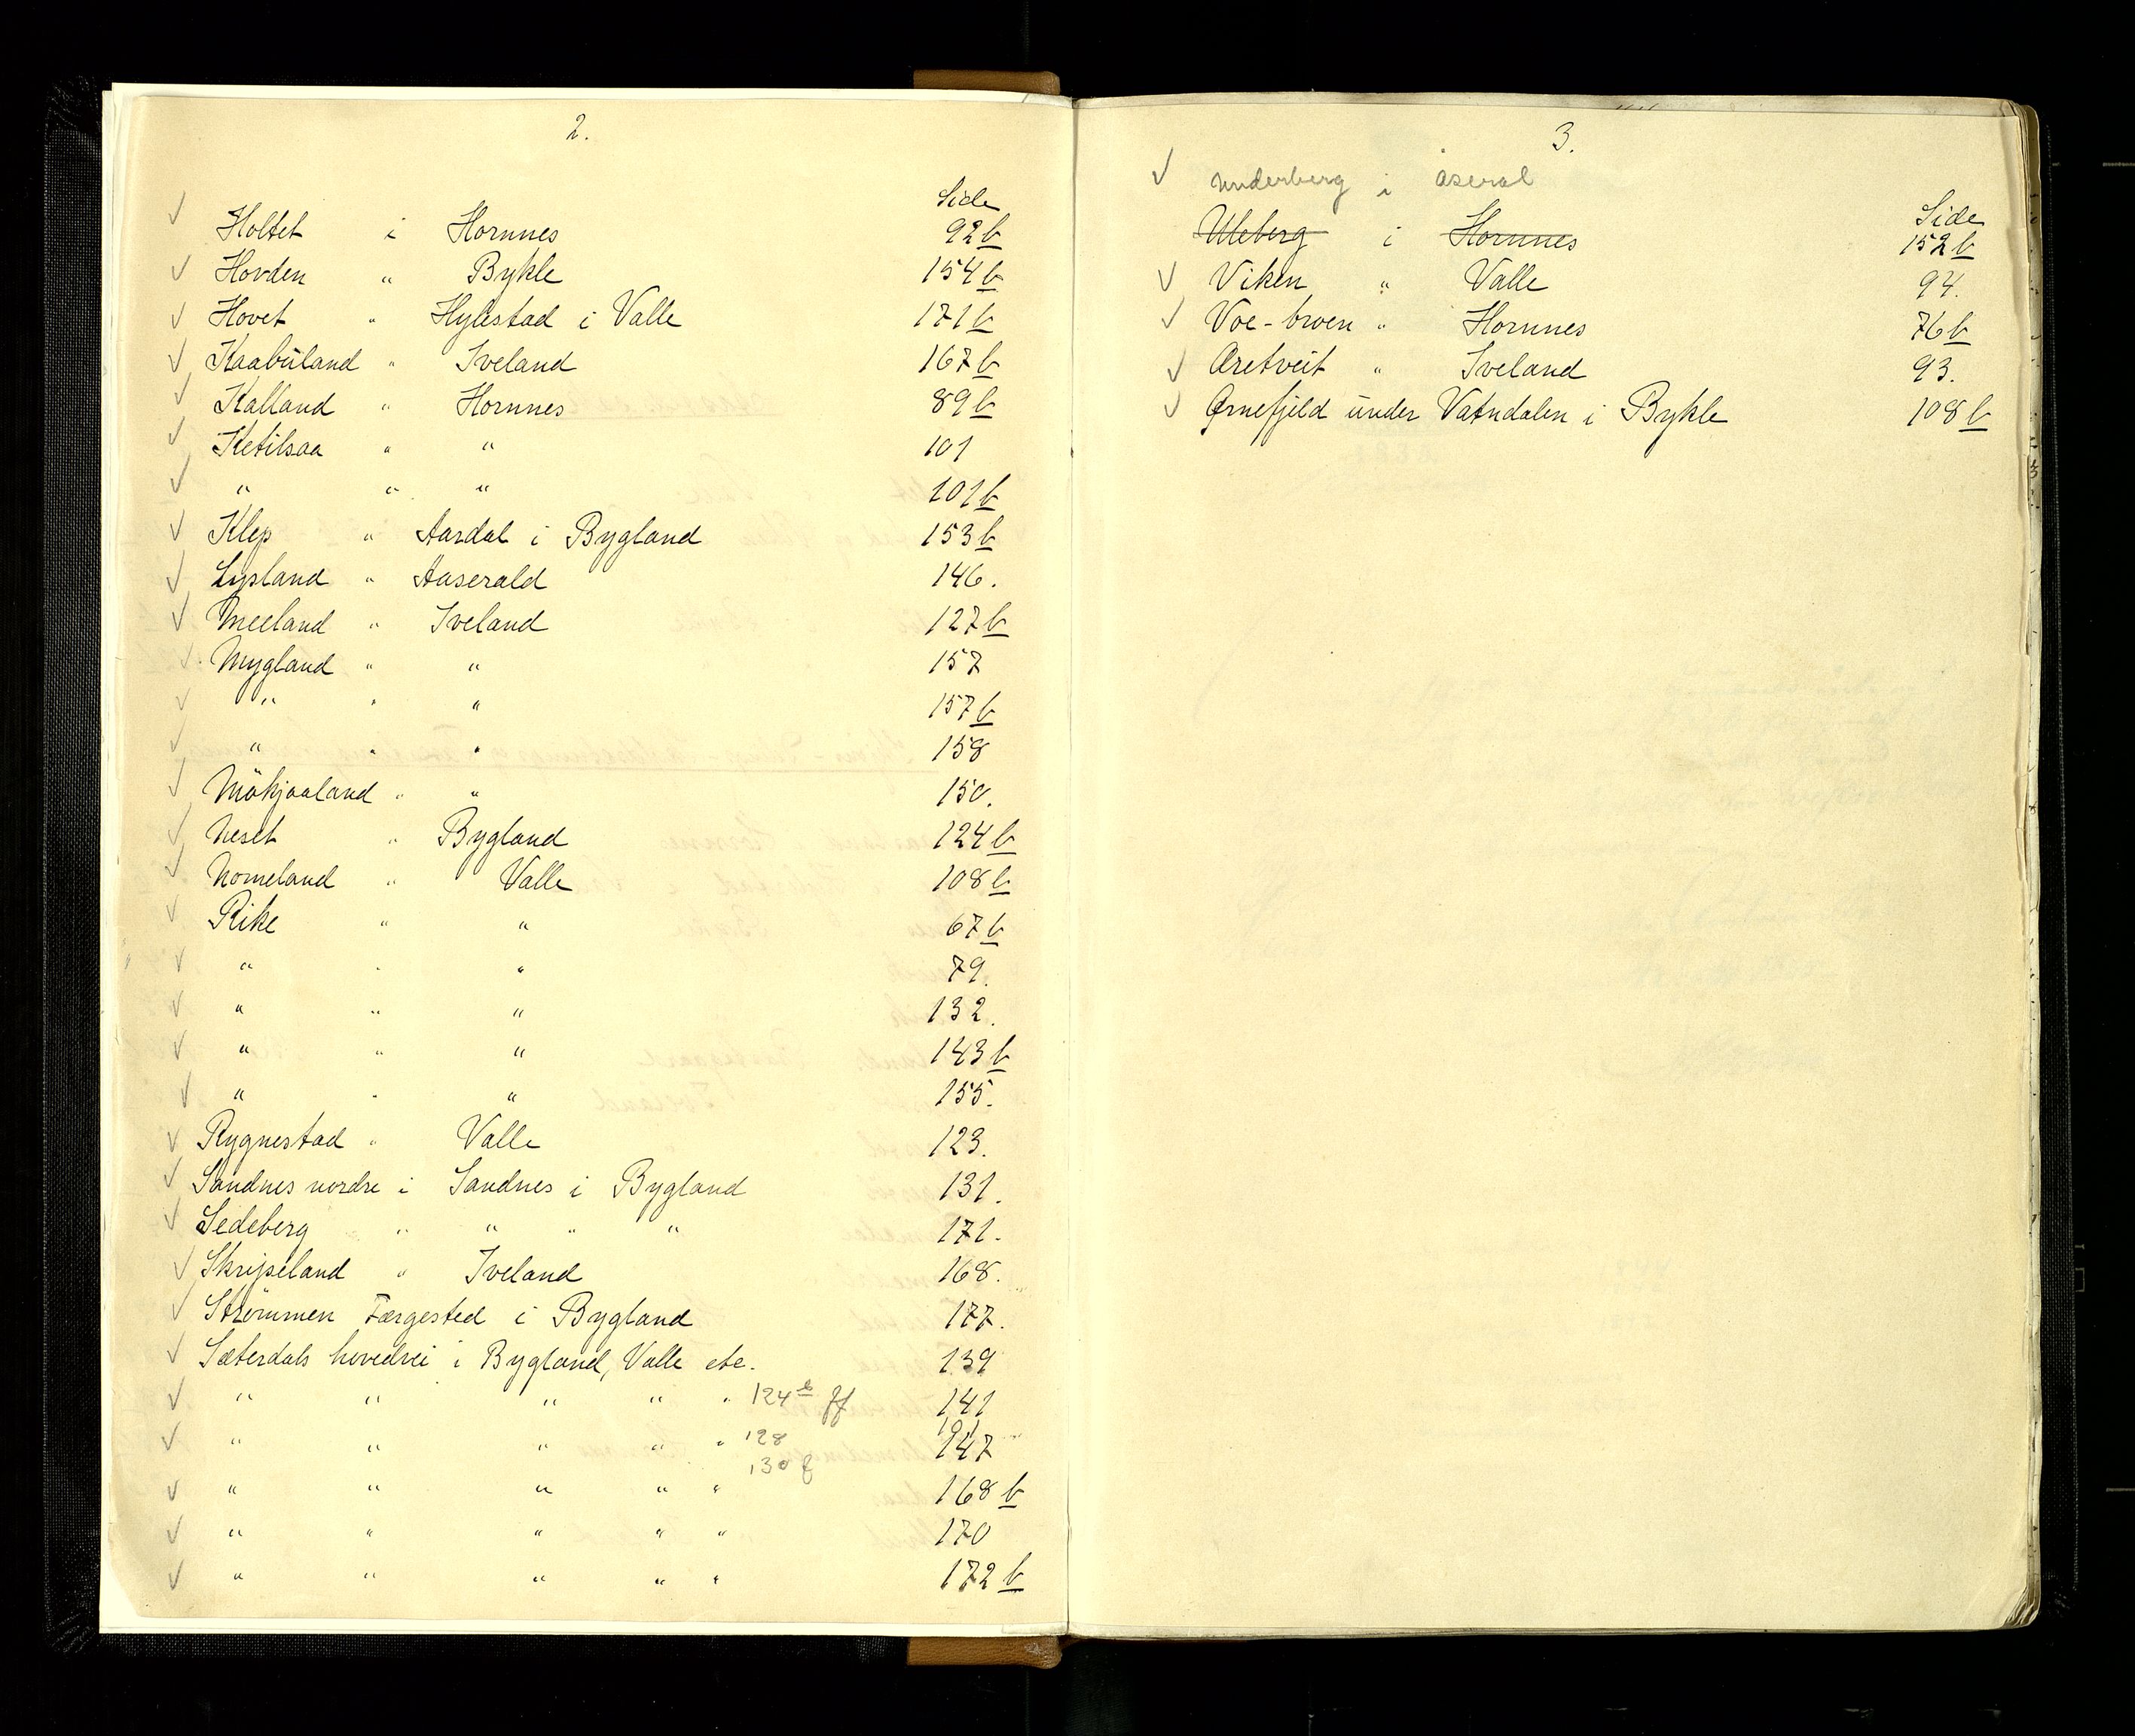 2.
Side
Holtet i Hornnes 92b
Hovden " Bykle 154b
Hovet " Hylestad i Valle 171b
Kaabuland " Iveland 167b
Kalland " Hornnes 89b
Ketilsaa " " 101
" " " 101b
Klep " Aardal i Bygland 153b
Lysland " Aaserald 146.
Meeland " Iveland 127b
Mygland " " 157
" " " 157b
" " " 158
Mökjaaland " " 150.
Neset " Bygland 124b
Nomeland " Valle 108b
Rike " " 67b
" " " 79.
" " " 132.
" " " 143b
" " " 155.
Rygnestad " Valle 123.
Sandnes nordre i Sandnes i Bygland 131.
Sedeberg " " " " 171.
Skripeland " Iveland 168.
Strömmen Færgested i Bygland 177.
Sæterdals hovedvei i Bygland, Valle etc. 139
" " " " " 124b ff 141
" " " " " 128 147
130 f
" " " " " 168b
" " " " " 170
" " " " " 172b
3.
Underberg i åseral
Side
Uleberg i Hornnes 152b
Viken " Valle 94.
Voe-broen " Hornnes 76b
Øretveit " Iveland 93.
Ørnefjeld under Vatndalen i Bykle 108b